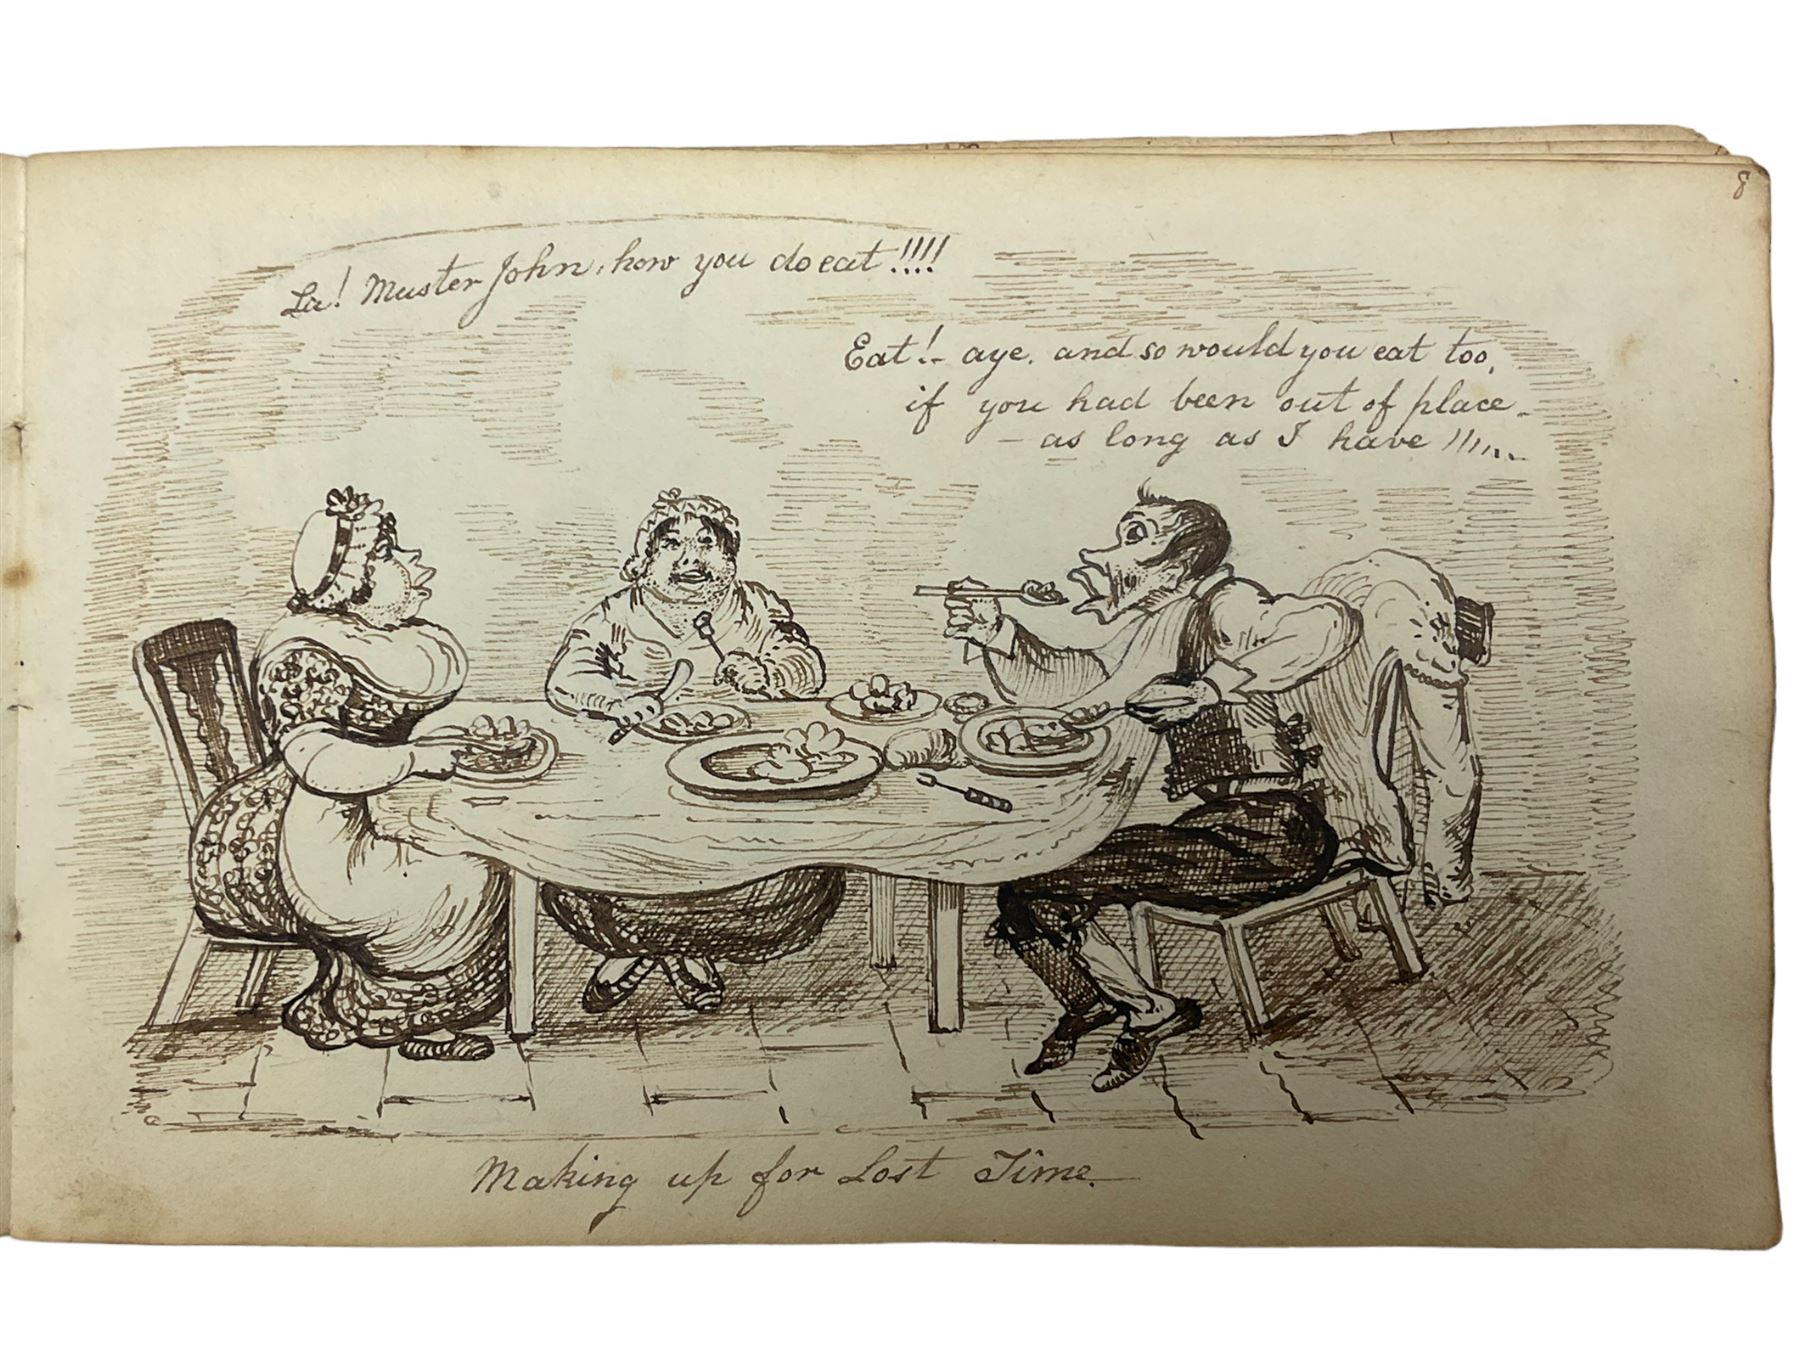 8
La! Muster John, how you do eat!!!!
Eat!- aye. and so would you eat too,
if you had been out of place -
- as long as I have !!!!...
Making up for Lost Time.